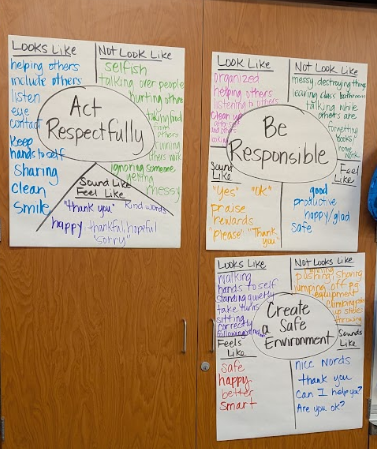 Looks Like
helping others
include others
listen
eye
contact
Keep
hands to self
Sharing
clean
Smile
Not Look Like
selfish
talking over people
hurting others
taking food
from
others
ruining
others work
ignoring someone
yelling
messy
Act
Respectfully
Sound Like
Feel Like
"thank you" Kind words
happy thankful hopeful
"sorry"
Look Like
organized
helping others
listening to others
clean up
Not Look Like
messy, destroying things
leaving class
talking while
others are
forgetting
books/
home
work
Be
Responsible
Sound
Like
"Yes" "OK"
praise
rewards
"please" "Thank
you"
Feel
Like
good
productive
happy/glad
safe
Looks Like
walking
hands to self
standing quietly
take turns
sitting
correctly
Not Looks Like
pushing/sharing
jumping off pg
equipment
climbing
up slide
throwing
Create
a Safe
Environment
Feels
Like
safe
happy
better
smart
Sounds
Like
nice words
thank you
Can I help you?
Are you ok?